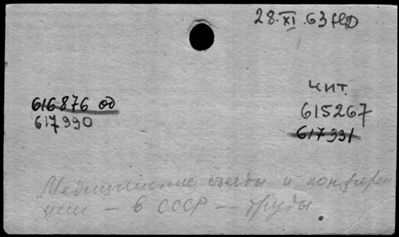 28.XI.63
чит.
616876 од
615267
617990
617931
Медицинские съезды и конферен
ции — в СССР — труды.